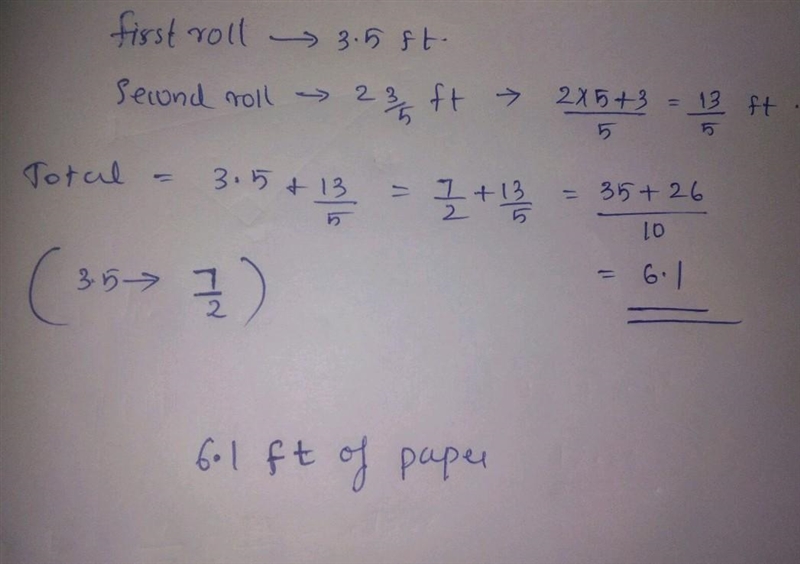 first roll → 3.5 ft.
Second roll → 2 3/5 ft → (2×5+3)/5 = 13/5 ft.
Total = 3.5 + 13/5 = 7/2 + 13/5 = (35+26)/10
(3.5 → 7/2)
= 6.1
6.1 ft of paper